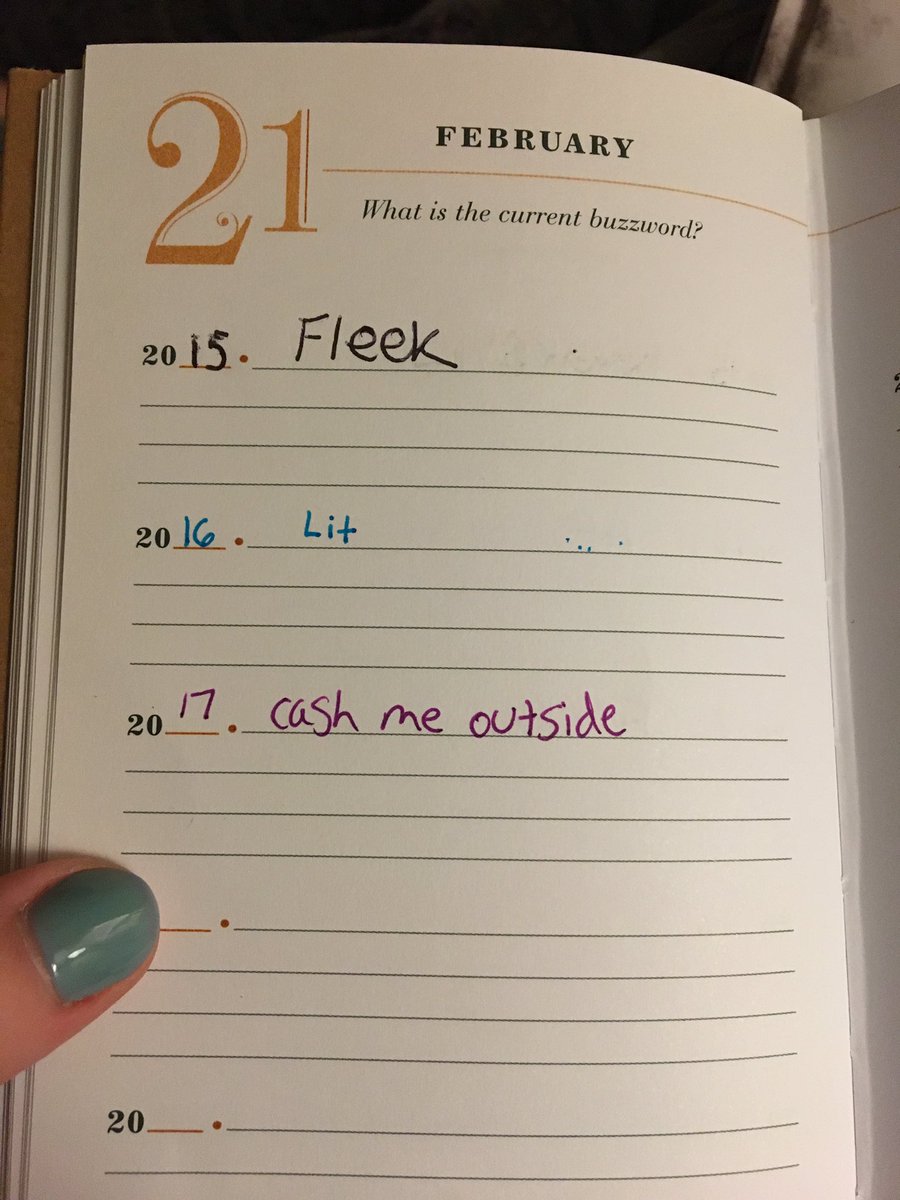 21
FEBRUARY
What is the current buzzword?
2015. Fleek
2016. Lit
2017. cash me outside
20